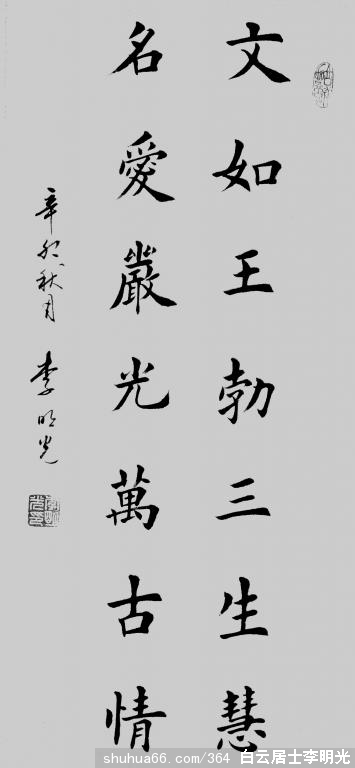 文如王勃三生慧
名愛嚴光萬古情
辛卯秋月 李明光
shuhua66.com/364 白云居士李明光